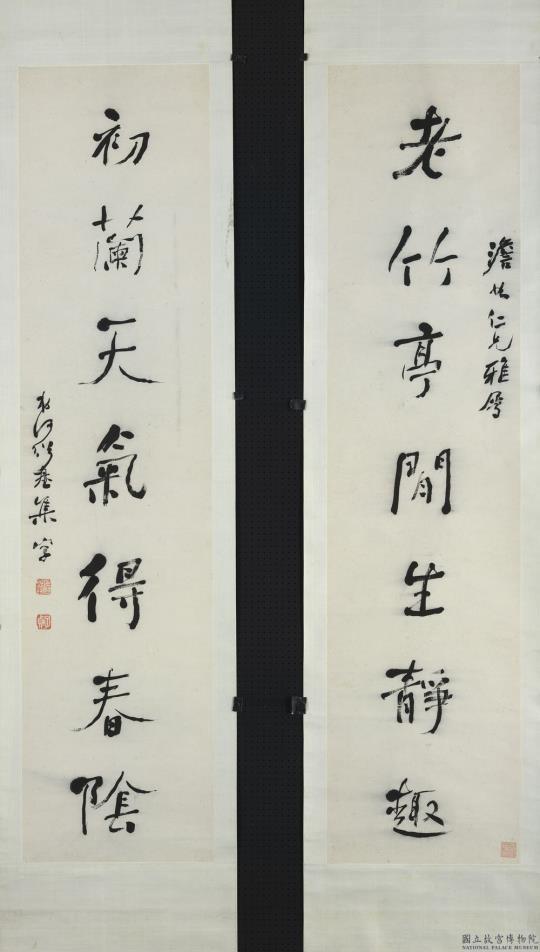 澹如仁兄雅屬
老竹亭閒生靜趣
初蘭天氣得春陰
弟何紹基集字
國立故宮博物院
NATIONAL PALACE MUSEUM